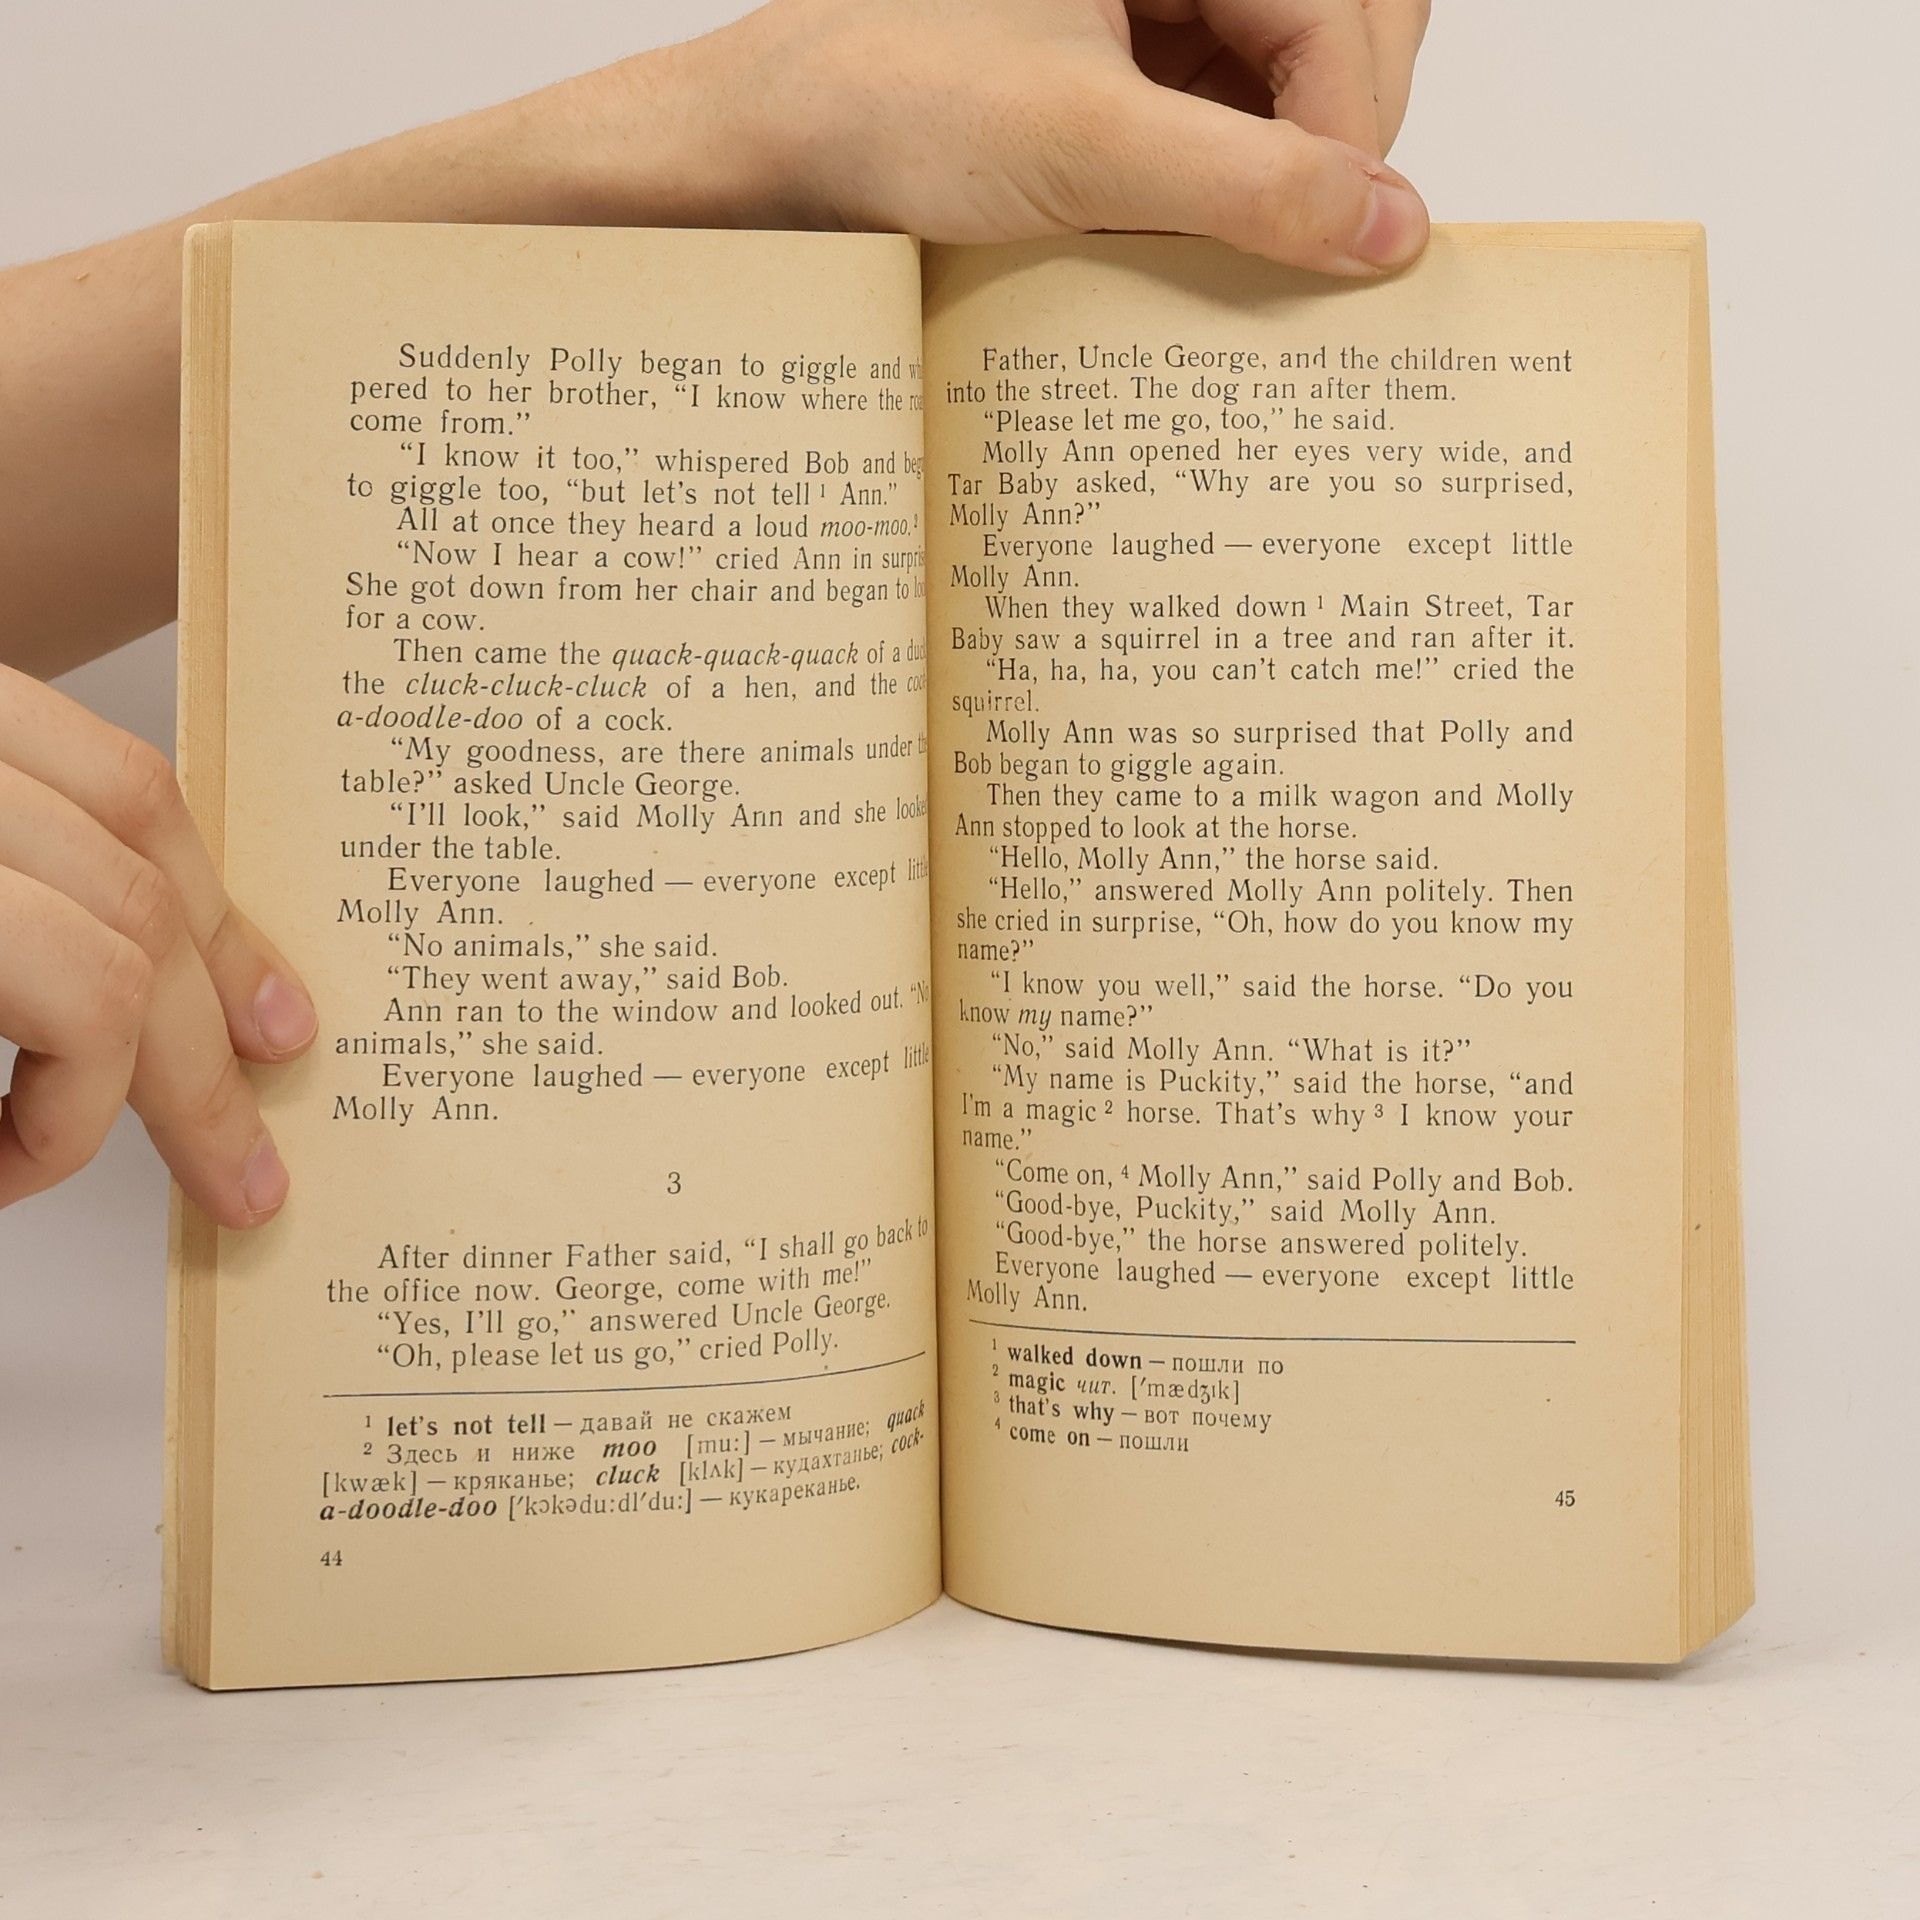 Suddenly Polly began to giggle and
pered to her brother, “I know where the
come from.”
“I know it too,” whispered Bob and
to giggle too, “but let’s not tell ¹ Ann.”
All at once they heard a loud moo-moo.²
“Now I hear a cow!” cried Ann in
She got down from her chair and began to
for a cow.
Then came the quack-quack-quack of a
the cluck-cluck-cluck of a hen, and the
a-doodle-doo of a cock.
“My goodness, are there animals under
table?” asked Uncle George.
“I’ll look,” said Molly Ann and she looked
under the table.
Everyone laughed — everyone except little
Molly Ann.
“No animals,” she said.
“They went away,” said Bob.
Ann ran to the window and looked out. “No
animals,” she said.
Everyone laughed — everyone except little
Molly Ann.
3
After dinner Father said, “I shall go back to
the office now. George, come with me!”
“Yes, I’ll go,” answered Uncle George.
“Oh, please let us go,” cried Polly.
¹ let’s not tell — давай не скажем
² Здесь и ниже moo [mu:] — мычание; quack
[kwæk] — кряканье; cluck [klʌk] — кудахтанье; cock-
a-doodle-doo [ʹkɔkədu:dlʹdu:] — кукареканье.
44
Father, Uncle George, and the children went
into the street. The dog ran after them.
“Please let me go, too,” he said.
Molly Ann opened her eyes very wide, and
Tar Baby asked, “Why are you so surprised,
Molly Ann?”
Everyone laughed — everyone except little
Molly Ann.
When they walked down ¹ Main Street, Tar
Baby saw a squirrel in a tree and ran after it.
“Ha, ha, ha, you can’t catch me!” cried the
squirrel.
Molly Ann was so surprised that Polly and
Bob began to giggle again.
Then they came to a milk wagon and Molly
Ann stopped to look at the horse.
“Hello, Molly Ann,” the horse said.
“Hello,” answered Molly Ann politely. Then
she cried in surprise, “Oh, how do you know my
name?”
“I know you well,” said the horse. “Do you
know my name?”
“No,” said Molly Ann. “What is it?”
“My name is Puckity,” said the horse, “and
I’m a magic ² horse. That’s why ³ I know your
name.”
“Come on, ⁴ Molly Ann,” said Polly and Bob.
“Good-bye, Puckity,” said Molly Ann.
“Good-bye,” the horse answered politely.
Everyone laughed — everyone except little
Molly Ann.
¹ walked down — пошли по
² magic чит. [ʹmædʒɪk]
³ that’s why — вот почему
⁴ come on — пошли
45